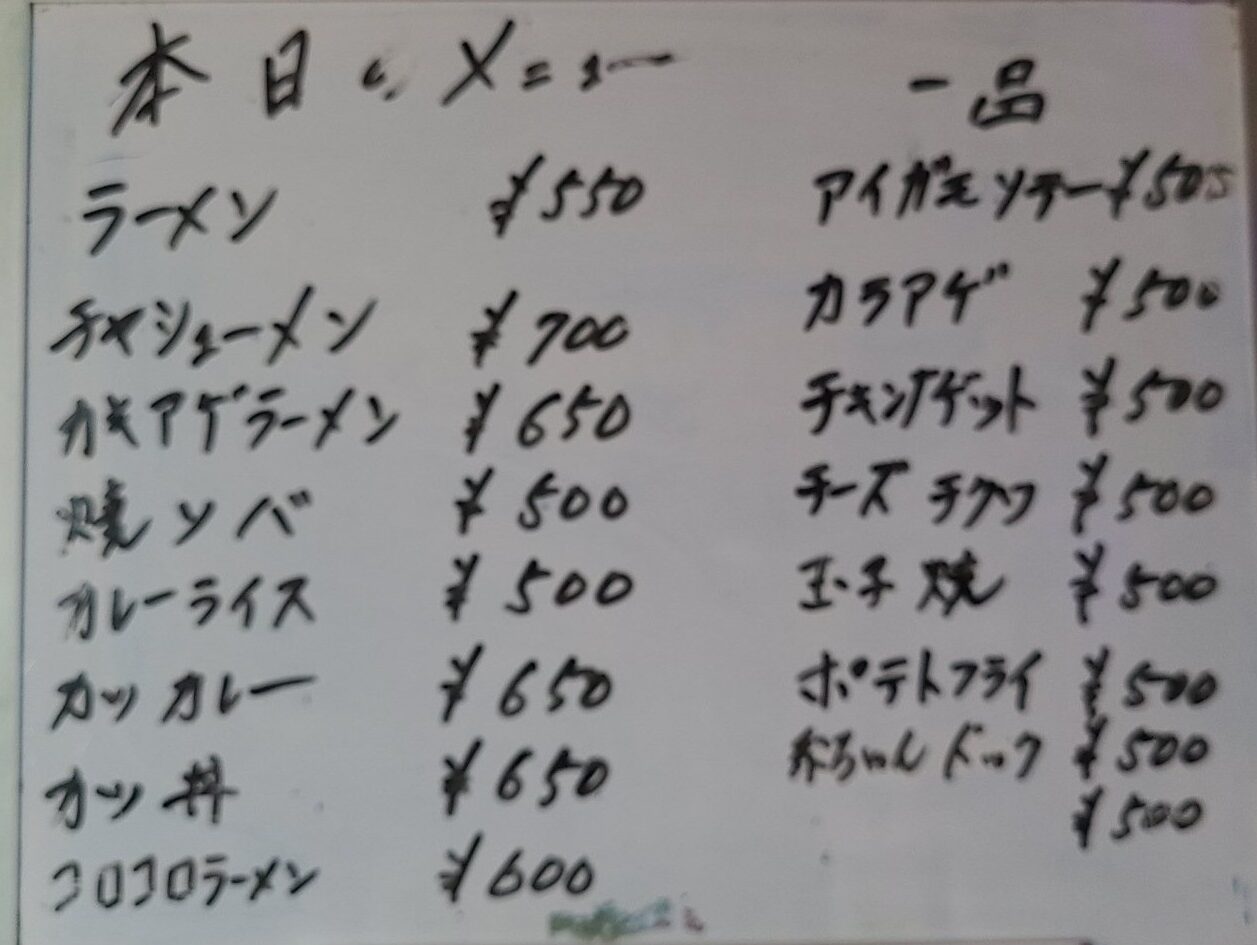 本日のメニュー
ラーメン ¥550
チャシューメン ¥700
カキアゲラーメン ¥650
焼ソバ ¥500
カレーライス ¥500
カツカレー ¥650
カツ丼 ¥650
コロコロラーメン ¥600
一品
アイガモソテー ¥500
カラアゲ ¥500
チキンナゲット ¥500
チーズチクワ ¥500
玉子焼 ¥500
ポテトフライ ¥500
赤ちゃんドック ¥500
¥500